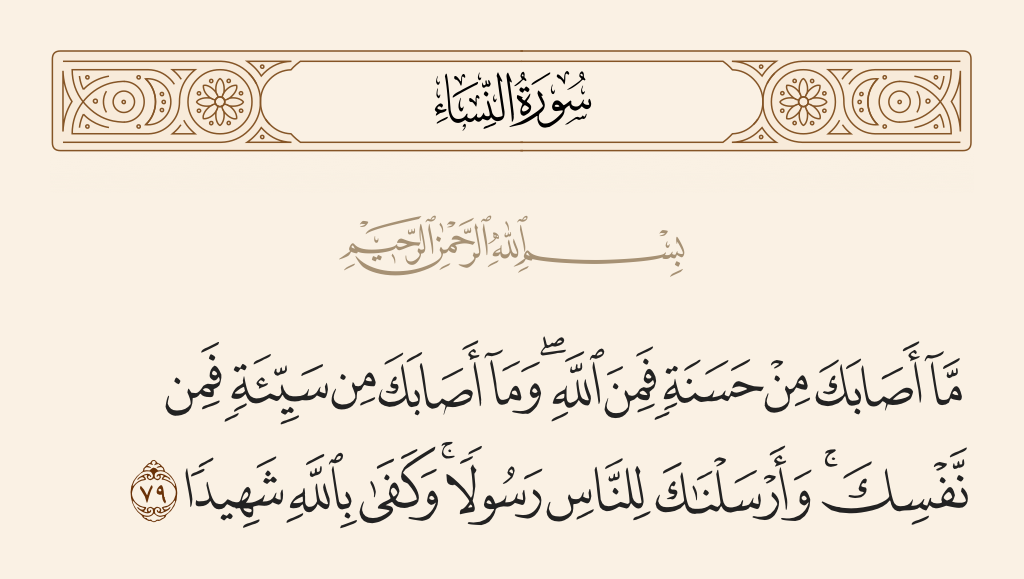 سُورَةُ النِّسَاءِ
بِسْمِ ٱللَّهِ ٱلرَّحْمَٰنِ ٱلرَّحِيمِ
مَّآ أَصَابَكَ مِنْ حَسَنَةٍ فَمِنَ ٱللَّهِ ۖ وَمَآ أَصَابَكَ مِن سَيِّئَةٍ فَمِن
نَّفْسِكَ ۚ وَأَرْسَلْنَٰكَ لِلنَّاسِ رَسُولًا ۚ وَكَفَىٰ بِٱللَّهِ شَهِيدًا ٧٩